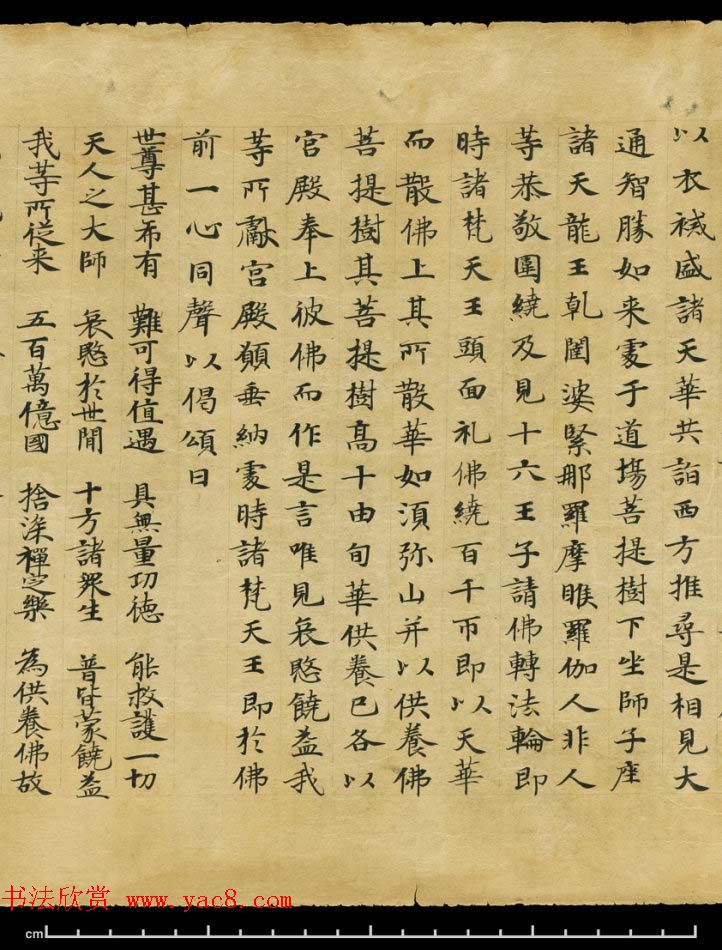 以衣祴盛諸天華共詣西方推尋是相見大
通智勝如来處于道塲菩提樹下坐師子座
諸天龍王乹闥婆緊那羅摩睺羅伽人非人
等恭敬圍繞及見十六王子請佛轉法輪即
時諸梵天王頭面礼佛繞百千帀即以天華
而散佛上其所散華如須弥山并以供養佛
菩提樹其菩提樹髙十由旬華供養已各以
宫殿奉上彼佛而作是言唯見哀愍饒益我
等所獻宫殿願垂納處時諸梵天王即於佛
前一心同聲以偈頌曰
世尊甚希有 難可得值遇 具無量功德 能救護一切
天人之大師 哀愍於世間 十方諸衆生 普皆蒙饒益
我等所從来 五百萬億國 捨深禪定樂 為供養佛故
书法欣赏 www.yac8.com
cm